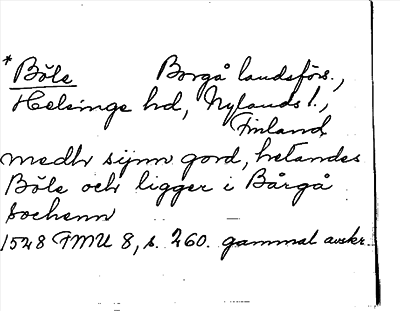 *Böle Borgå landsförs.,
Helsinge hd, Nylands l.,
Finland
medhr sijnn gord, hetandes
Böle och ligger i Bårgå
sochenn
1528 FMU 8, s. 260. gammal avskr.